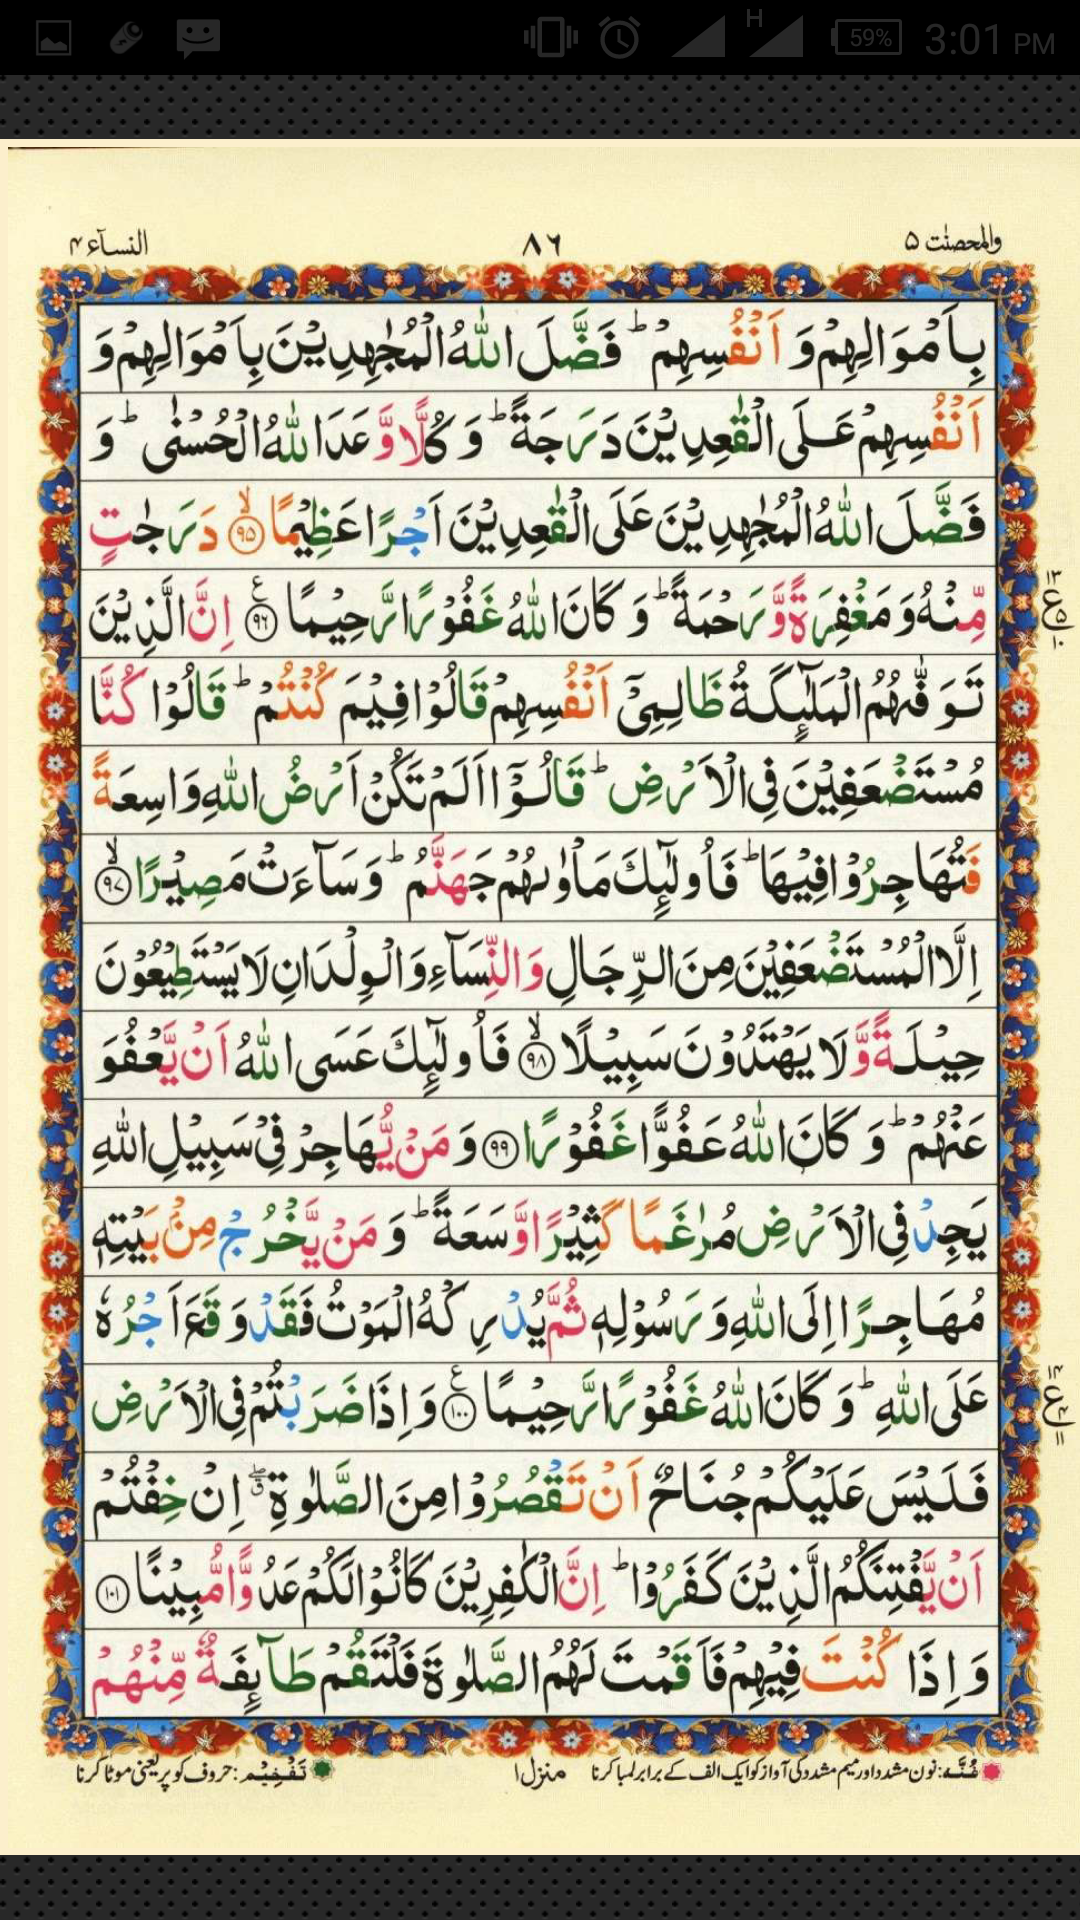 59% 3:01 PM
H
والمحصنٰت ٥ ٨٦ النسآء ٤
بِاَمْوَالِهِمْ وَ اَنْفُسِهِمْ ؕ فَضَّلَ اللّٰهُ الْمُجٰهِدِيْنَ بِاَمْوَالِهِمْ وَ
اَنْفُسِهِمْ عَلَى الْقٰعِدِيْنَ دَرَجَةً ؕ وَ كُلًّا وَّعَدَ اللّٰهُ الْحُسْنٰى ؕ وَ
فَضَّلَ اللّٰهُ الْمُجٰهِدِيْنَ عَلَى الْقٰعِدِيْنَ اَجْرًا عَظِيْمًا ۙ﴿٩٥﴾ دَرَجٰتٍ
مِّنْهُ وَ مَغْفِرَةً وَّ رَحْمَةً ؕ وَ كَانَ اللّٰهُ غَفُوْرًا رَّحِيْمًا ﴿٩٦﴾ ع اِنَّ الَّذِيْنَ
١٣ ع ٥ ١٠
تَوَفّٰهُمُ الْمَلٰٓئِكَةُ ظَالِمِيْۤ اَنْفُسِهِمْ قَالُوْا فِيْمَ كُنْتُمْ ؕ قَالُوْا كُنَّا
مُسْتَضْعَفِيْنَ فِى الْاَرْضِ ؕ قَالُوْۤا اَلَمْ تَكُنْ اَرْضُ اللّٰهِ وَاسِعَةً
فَتُهَاجِرُوْا فِيْهَا ؕ فَاُولٰٓئِكَ مَاْوٰىهُمْ جَهَنَّمُ ؕ وَ سَآءَتْ مَصِيْرًا ۙ﴿٩٧﴾
اِلَّا الْمُسْتَضْعَفِيْنَ مِنَ الرِّجَالِ وَ النِّسَآءِ وَ الْوِلْدَانِ لَا يَسْتَطِيْعُوْنَ
حِيْلَةً وَّ لَا يَهْتَدُوْنَ سَبِيْلًا ۙ﴿٩٨﴾ فَاُولٰٓئِكَ عَسَى اللّٰهُ اَنْ يَّعْفُوَ
عَنْهُمْ ؕ وَ كَانَ اللّٰهُ عَفُوًّا غَفُوْرًا ﴿٩٩﴾ وَ مَنْ يُّهَاجِرْ فِيْ سَبِيْلِ اللّٰهِ
يَجِدْ فِى الْاَرْضِ مُرٰغَمًا كَثِيْرًا وَّ سَعَةً ؕ وَ مَنْ يَّخْرُجْ مِنْۢ بَيْتِهٖ
مُهَاجِرًا اِلَى اللّٰهِ وَ رَسُوْلِهٖ ثُمَّ يُدْرِكْهُ الْمَوْتُ فَقَدْ وَقَعَ اَجْرُهٗ
عَلَى اللّٰهِ ؕ وَ كَانَ اللّٰهُ غَفُوْرًا رَّحِيْمًا ﴿١٠٠﴾ ع وَ اِذَا ضَرَبْتُمْ فِى الْاَرْضِ
١٤ ع ٤ ١١
فَلَيْسَ عَلَيْكُمْ جُنَاحٌ اَنْ تَقْصُرُوْا مِنَ الصَّلٰوةِ ۖۗ اِنْ خِفْتُمْ
اَنْ يَّفْتِنَكُمُ الَّذِيْنَ كَفَرُوْا ؕ اِنَّ الْكٰفِرِيْنَ كَانُوْا لَكُمْ عَدُوًّا مُّبِيْنًا ﴿١٠١﴾
وَ اِذَا كُنْتَ فِيْهِمْ فَاَقَمْتَ لَهُمُ الصَّلٰوةَ فَلْتَقُمْ طَآئِفَةٌ مِّنْهُمْ
غُنَّه: نون مشدد اور میم مشدد کی آواز کو ایک الف کے برابر لمبا کرنا منزل ١ تَفْخِيْم: حروف کو پُر یعنی موٹا کرنا